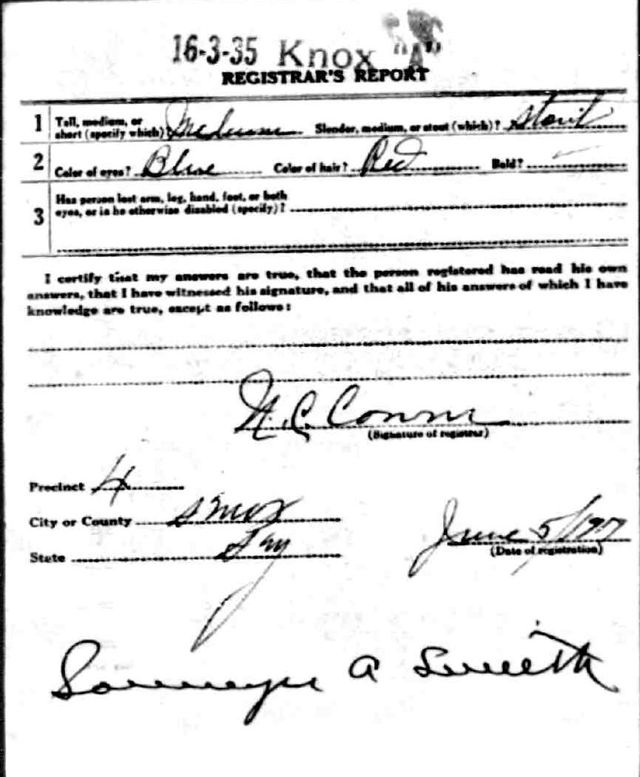 16-3-35 Knox "A"
REGISTRAR'S REPORT
1 Tall, medium, or short (specify which)? Medium Slender, medium, or stout (which)? Stout
2 Color of eyes? Blue Color of hair? Red Bald?
3 Has person lost arm, leg, hand, foot, or both eyes, or is he otherwise disabled (specify)?
I certify that my answers are true, that the person registered has read his own
answers, that I have witnessed his signature, and that all of his answers of which I have
knowledge are true, except as follows:
(Signature of registrar)
Precinct 4
City or County Knox
State
June 5/1917
(Date of registration)
A Smith